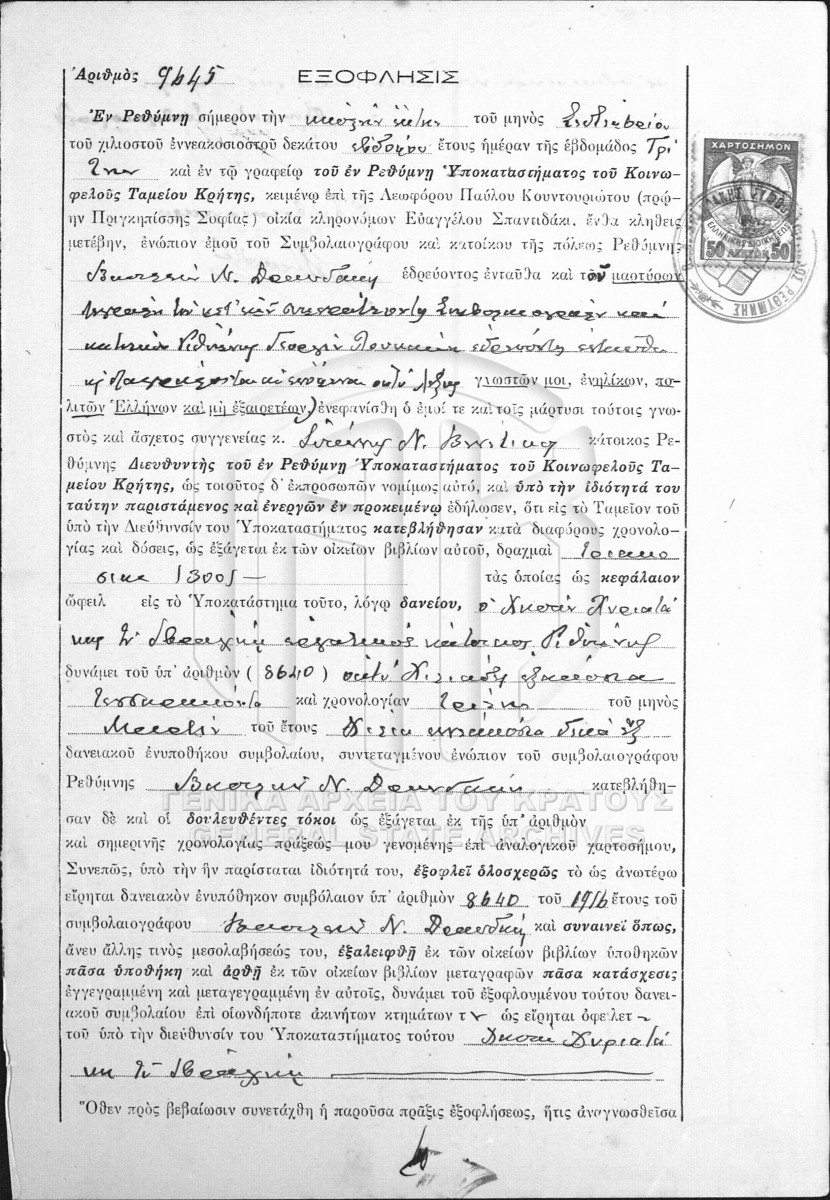 Ἀριθμὸς 9645 ΕΞΟΦΛΗΣΙΣ
Ἐν Ρεθύμνῃ σήμερον τὴν εἰκοστὴν ἕκτην τοῦ μηνὸς Σεπτεμβρίου
τοῦ χιλιοστοῦ ἐννεακοσιοστοῦ δεκάτου ἑβδόμου ἔτους ἡμέραν τῆς ἑβδομάδος Τρί
την καὶ ἐν τῷ γραφείῳ τοῦ ἐν Ρεθύμνῃ Ὑποκαταστήματος τοῦ Κοινω-
φελοῦς Ταμείου Κρήτης, κειμένῳ ἐπὶ τῆς Λεωφόρου Παύλου Κουντουριώτου (πρώ-
ην Πριγκηπίσσης Σοφίας) οἰκία κληρονόμων Εὐαγγέλου Σπαντιδάκι, ἔνθα κληθεὶς
μετέβην, ἐνώπιον ἐμοῦ τοῦ Συμβολαιογράφου καὶ κατοίκου τῆς πόλεως Ρεθύμνης
Βασιλείου Ν. Δρανδάκη ἑδρεύοντος ἐνταῦθα καὶ τοῦ μαρτύρων
συμβολαιογράφου καὶ
κατοίκου Ρεθύμνης Γεωργίου ἑδρεύοντος ἐνταῦθα
γνωστῶν μοι, ἐνηλίκων, πο-
λιτῶν Ἑλλήνων καὶ μὴ ἐξαιρετέων, ἐνεφανίσθη ὁ ἐμοί τε καὶ τοῖς μάρτυσι τούτοις γνω-
στὸς καὶ ἄσχετος συγγενείας κ. Ν. κάτοικος Ρε-
θύμνης Διευθυντὴς τοῦ ἐν Ρεθύμνῃ Ὑποκαταστήματος τοῦ Κοινωφελοῦς Τα-
μείου Κρήτης, ὡς τοιοῦτος δ' ἐκπροσωπῶν νομίμως αὐτό, καὶ ὑπὸ τὴν ἰδιότητά του
ταύτην παριστάμενος καὶ ἐνεργῶν ἐν προκειμένῳ ἐδήλωσεν, ὅτι εἰς τὸ Ταμεῖον τοῦ
ὑπὸ τὴν Διεύθυνσίν του Ὑποκαταστήματος κατεβλήθησαν κατὰ διαφόρους χρονολο-
γίας καὶ δόσεις, ὡς ἐξάγεται ἐκ τῶν οἰκείων βιβλίων αὐτοῦ, δραχμαὶ τριακό
σιαι (300) — τὰς ὁποίας ὡς κεφάλαιον
ὤφειλ εἰς τὸ Ὑποκατάστημα τοῦτο, λόγῳ δανείου, ὁ Χασὰν
κάτοικος Ρεθύμνης
δυνάμει τοῦ ὑπ' ἀριθμὸν (8640) ὀκτὼ χιλιάδες ἑξακόσια
τεσσαράκοντα καὶ χρονολογίαν τρίτης τοῦ μηνὸς
Μαρτίου τοῦ ἔτους χίλια ἐννεακόσια δέκα ἓξ
δανειακοῦ ἐνυποθήκου συμβολαίου, συντεταγμένου ἐνώπιον τοῦ συμβολαιογράφου
Ρεθύμνης Βασιλείου Ν. Δρανδάκη κατεβλήθη-
ΓΕΝΙΚΑ ΑΡΧΕΙΑ ΤΟΥ ΚΡΑΤΟΥΣ
σαν δὲ καὶ οἱ δουλευθέντες τόκοι ὡς ἐξάγεται ἐκ τῆς ὑπ' ἀριθμὸν
GENERAL STATE ARCHIVES
καὶ σημερινῆς χρονολογίας πράξεώς μου γενομένης ἐπὶ ἀναλογικοῦ χαρτοσήμου,
Συνεπῶς, ὑπὸ τὴν ἣν παρίσταται ἰδιότητά του, ἐξοφλεῖ ὁλοσχερῶς τὸ ὡς ἀνωτέρω
εἴρηται δανειακὸν ἐνυπόθηκον συμβόλαιον ὑπ' ἀριθμὸν 8640 τοῦ 1916 ἔτους τοῦ
συμβολαιογράφου Βασιλείου Ν. Δρανδάκη καὶ συναινεῖ ὅπως,
ἄνευ ἄλλης τινὸς μεσολαβήσεώς του, ἐξαλειφθῇ ἐκ τῶν οἰκείων βιβλίων ὑποθηκῶν
πᾶσα ὑποθήκη καὶ ἀρθῇ ἐκ τῶν οἰκείων βιβλίων μεταγραφῶν πᾶσα κατάσχεσις
ἐγγεγραμμένη καὶ μεταγεγραμμένη ἐν αὐτοῖς, δυνάμει τοῦ ἐξοφλουμένου τούτου δανει-
ακοῦ συμβολαίου ἐπὶ οἱωνδήποτε ἀκινήτων κτημάτων τ ὡς εἴρηται ὀφειλετ
τοῦ ὑπὸ τὴν διεύθυνσίν του Ὑποκαταστήματος τούτου Χασὰν
Ὅθεν πρὸς βεβαίωσιν συνετάχθη ἡ παροῦσα πρᾶξις ἐξοφλήσεως, ἥτις ἀναγνωσθεῖσα
ΧΑΡΤΟΣΗΜΟΝ
50 ΛΕΠΤΩΝ 50
ΡΕΘΥΜΝΗΣ